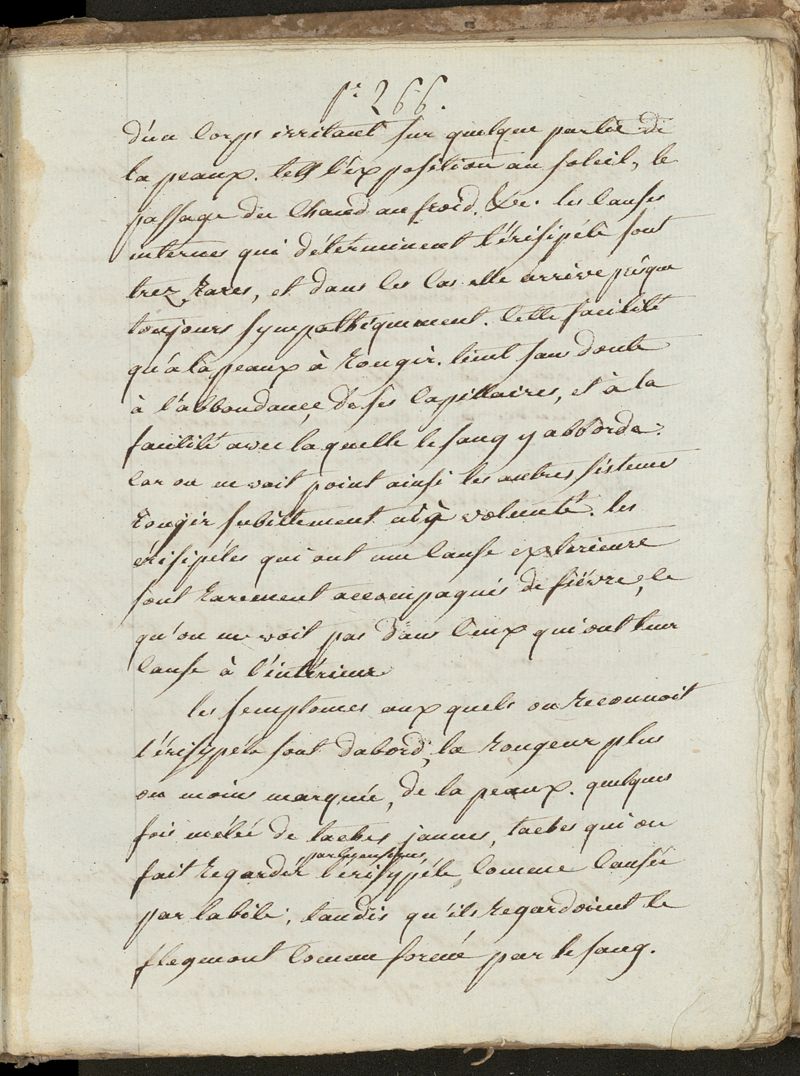 pe 266.
d'un Corps irritant sur quelque partie de
la peaux. tels l'exposition au soleil, le
passage du Chaud au froid. &c. les Causes
internes qui déterminent l'érisipéle sont
trez rares, et dans les Cas elle arrive presque
toujours sympathiquement. Cette facilité
qu'a la peaux à rougir. tient sans doute
à l'abbondance, de ses Capillaires, et à la
facilité avec laquelle le sang y abborde.
Car on ne voit point ainsi les autres sistemes
rougir subittement à volonté. les
érisipéles qui ont une Cause exterieure
sont rarement accompagnés de fièvre, ce
qu'on ne voit pas dans Ceux qui ont leur
Cause à l'intérieur
les semptomes aux quels on reconnoit
l'érisypéle sont dabord, la rougeur plus
ou moins marquée, de la peaux. quelques
fois mélée de taches jaunes, taches qui on
par les anciens,
fait regarder l'érisypéle, Comme Causée
par la bile, tandis qu'ils regardoient le
flegmont Comme formé par le sang.